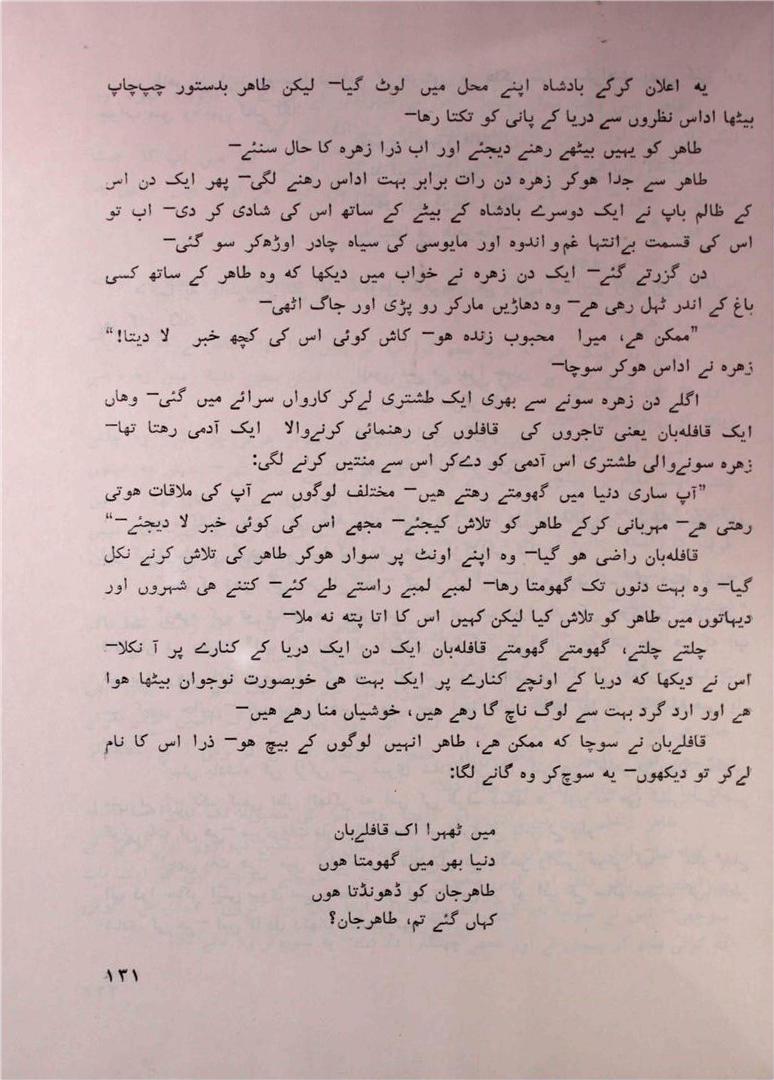 یه اعلان کرکے بادشاه اپنے محل میں لوٹ گیا— لیکن طاهر بدستور چپ‌چاپ
بیٹھا اداس نظروں سے دریا کے پانی کو تکتا رها—
طاهر کو یہیں بیٹھے رهنے دیجئے اور اب ذرا زهره کا حال سنئے—
طاهر سے جدا هوکر زهره دن رات برابر بہت اداس رهنے لگی— پھر ایک دن اس
کے ظالم باپ نے ایک دوسرے بادشاه کے بیٹے کے ساتھ اس کی شادی کر دی— اب تو
اس کی قسمت بےانتہا غم و اندوه اور مایوسی کی سیاه چادر اوڑھ‌کر سو گئی—
دن گزرتے گئے— ایک دن زهره نے خواب میں دیکھا که وه طاهر کے ساتھ کسی
باغ کے اندر ٹہل رهی هے— وه دھاڑیں مارکر رو پڑی اور جاگ اٹھی—
”ممکن هے، میرا محبوب زنده هو— کاش کوئی اس کی کچھ خبر لا دیتا!“
زهره نے اداس هوکر سوچا—
اگلے دن زهره سونے سے بھری ایک طشتری لےکر کارواں سرائے میں گئی— وهاں
ایک قافله‌بان یعنی تاجروں کی قافلوں کی رهنمائی کرنےوالا ایک آدمی رهتا تھا—
زهره سونےوالی طشتری اس آدمی کو دےکر اس سے منتیں کرنے لگی:
”آپ ساری دنیا میں گھومتے رهتے هیں— مختلف لوگوں سے آپ کی ملاقات هوتی
رهتی هے— مہربانی کرکے طاهر کو تلاش کیجئے— مجھے اس کی کوئی خبر لا دیجئے—“
قافله‌بان راضی هو گیا— وه اپنے اونٹ پر سوار هوکر طاهر کی تلاش کرنے نکل
گیا— وه بہت دنوں تک گھومتا رها— لمبے لمبے راستے طے کئے— کتنے هی شہروں اور
دیہاتوں میں طاهر کو تلاش کیا لیکن کہیں اس کا اتا پته نه ملا—
چلتے چلتے، گھومتے گھومتے قافله‌بان ایک دن ایک دریا کے کنارے پر آ نکلا—
اس نے دیکھا که دریا کے اونچے کنارے پر ایک بہت هی خوبصورت نوجوان بیٹھا هوا
هے اور ارد گرد بہت سے لوگ ناچ گا رهے هیں، خوشیاں منا رهے هیں—
قافلےبان نے سوچا که ممکن هے، طاهر انہیں لوگوں کے بیچ هو— ذرا اس کا نام
لےکر تو دیکھوں— یه سوچ‌کر وه گانے لگا:
میں ٹھہرا اک قافلےبان
دنیا بھر میں گھومتا هوں
طاهرجان کو ڈھونڈتا هوں
کہاں گئے تم، طاهرجان؟
۱۳۱